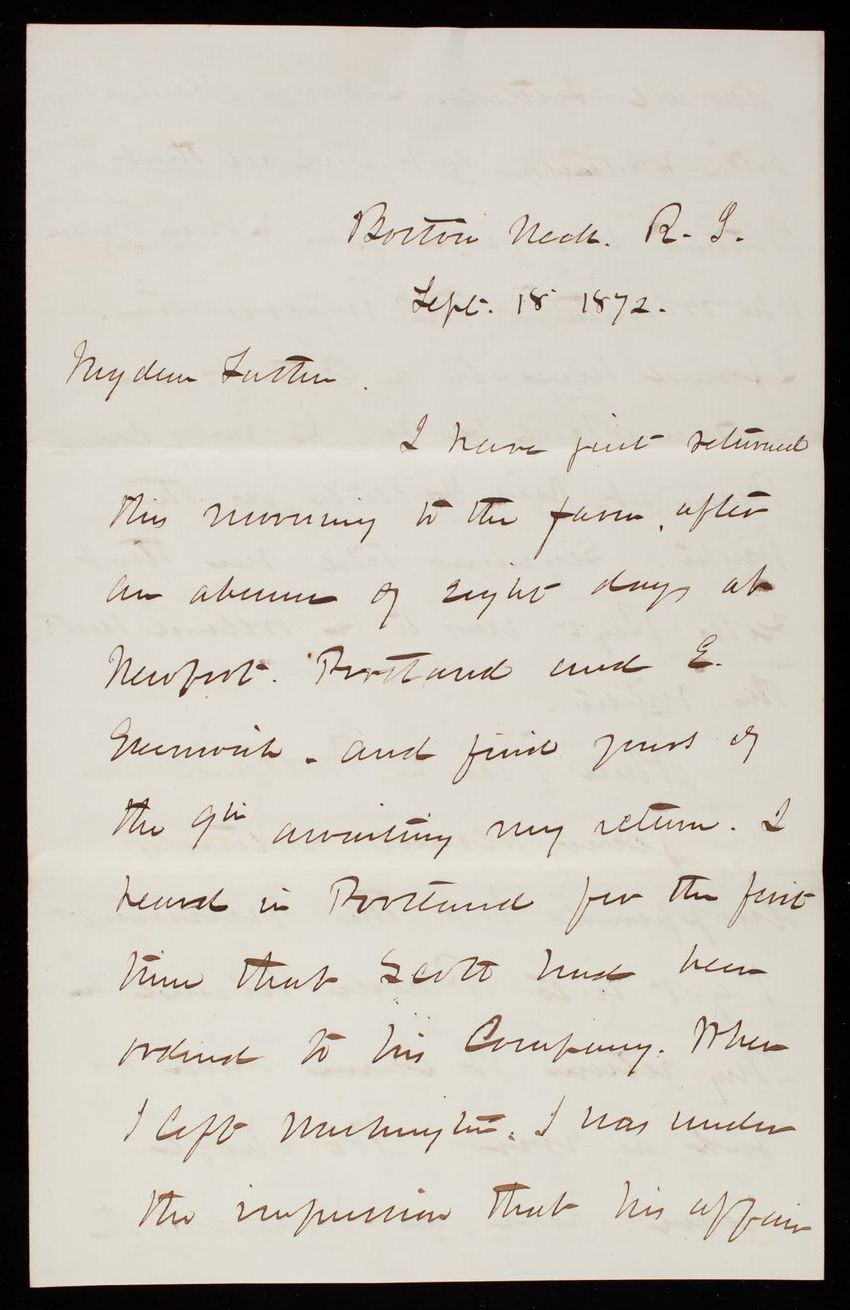 Boston Neck. R. I.
Sept. 18 1872.
My dear
I have just returned
this morning to the farm, after
an absence of eight days at
Newport. Portland and E.
Greenwich - and find yours of
the 9th awaiting my return. I
heard in Portland for the first
time that Scott had been
ordered to his Company. When
I left Washington, I was under
the impression that his affair